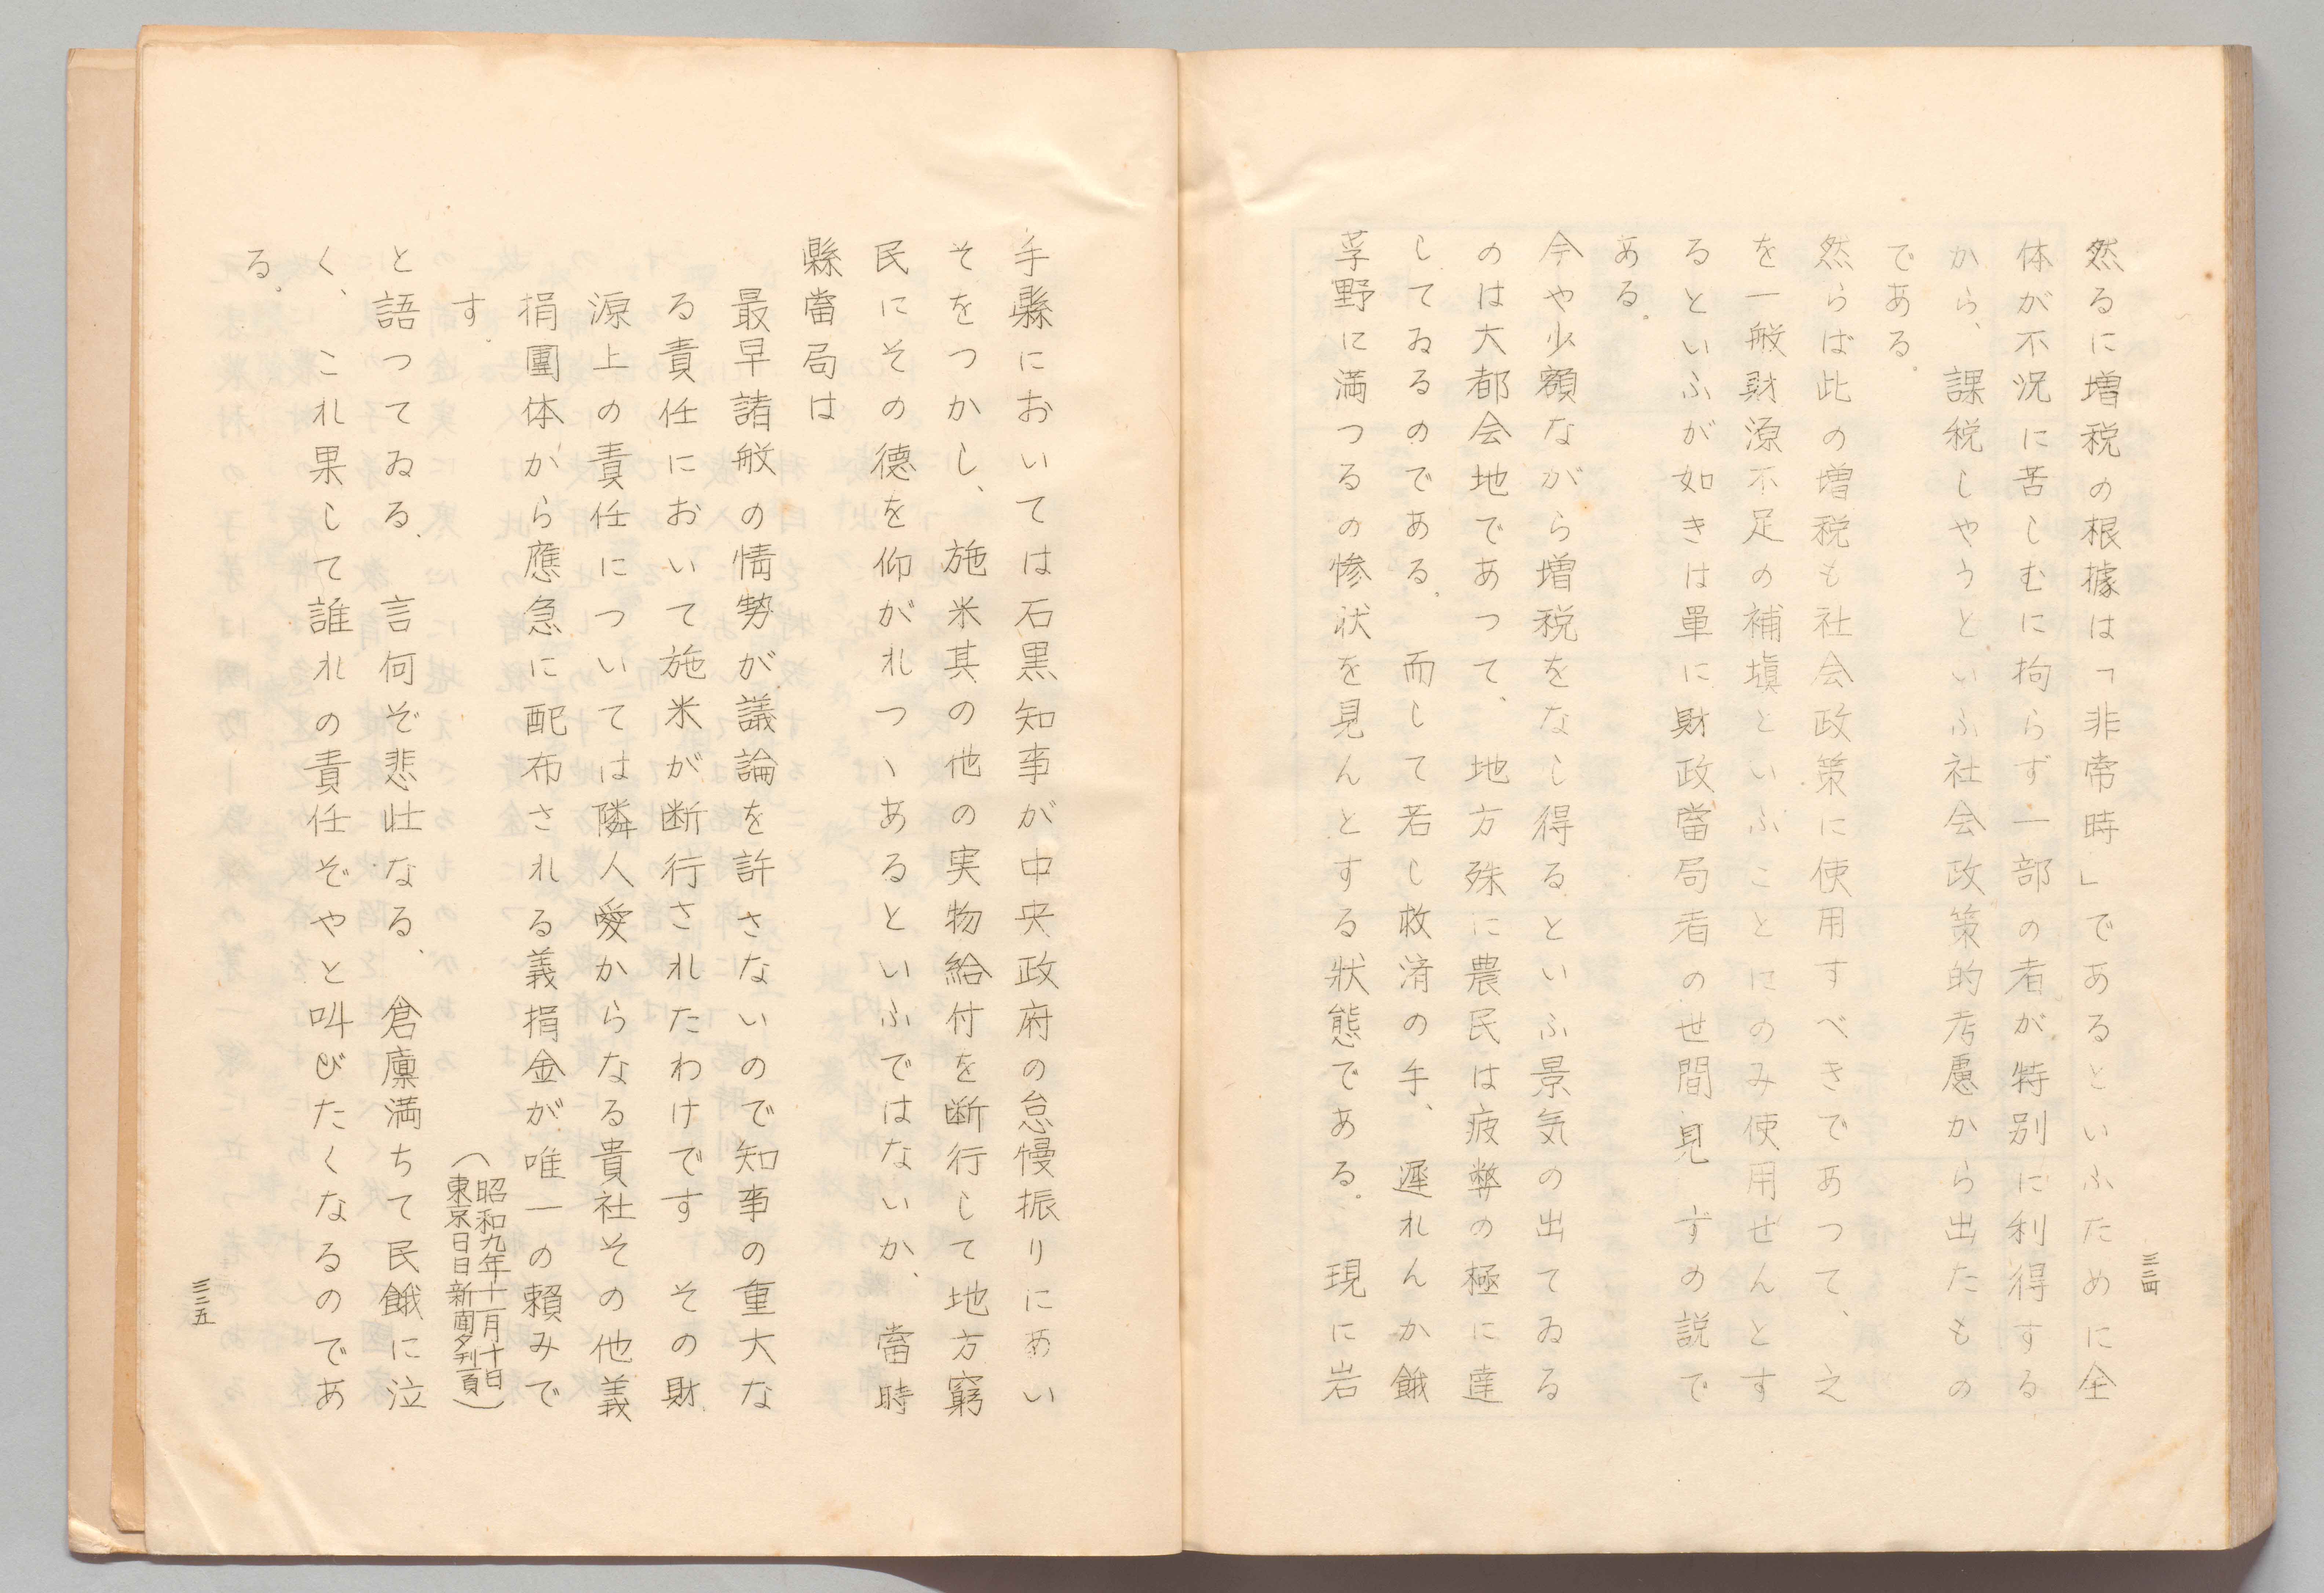 然るに増税の根據は「非常時」であるといふために全
体が不況に苦しむに拘らず一部の者が特別に利得する
から、課税しやうといふ社会政策的考慮から出たもの
である。
然らば此の増税も社会政策に使用すべきであつて、之
を一般財源不足の補塡といふことにのみ使用せんとす
るといふが如きは單に財政當局者の世間見ずの説で
ある。
今や少額ながら増税をなし得るといふ景気の出てゐる
のは大都会地であつて、地方殊に農民は疲弊の極に達
してゐるのである。而して若し救済の手、遅れんか餓
莩野に満つるの惨状を見んとする狀態である。現に岩
三二四
手縣においては石黒知事が中央政府の怠慢振りにあい
そをつかし、施米其の他の実物給付を断行して地方窮
民にその徳を仰がれつヽあるといふではないか、當時
縣當局は
最早諸般の情勢が議論を許さないので知事の重大な
る責任において施米が断行されたわけです その財
源上の責任については隣人愛からなる貴社その他義
捐團体から應急に配布される義捐金が唯一の賴みで
す。
(昭和九年十一月十日
東京日日新聞夕刊一頁)
と語つてゐる、言何ぞ悲壮なる、倉廩満ちて民餓に泣
く、これ果して誰れの責任ぞやと叫びたくなるのであ
る。
三二五